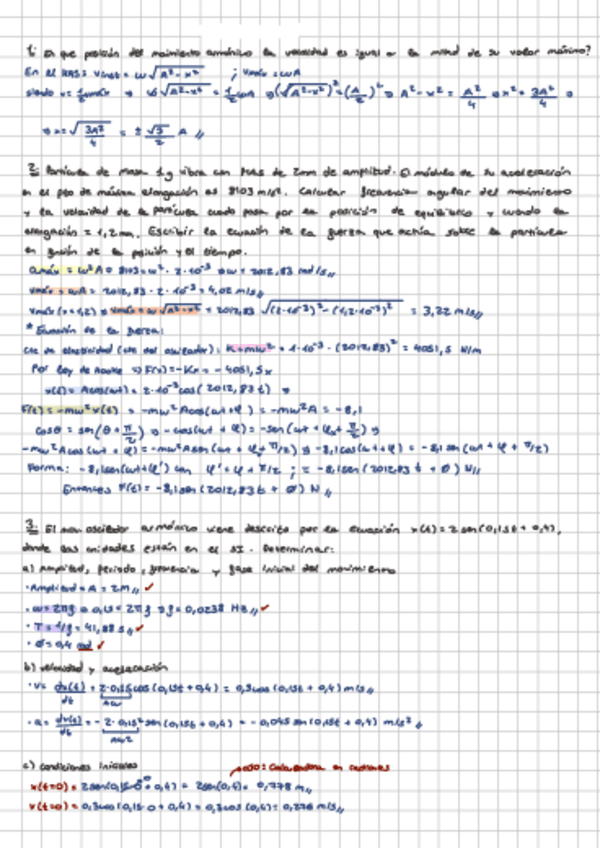 1. En que posición del movimiento armónico la velocidad es igual a la mitad de su valor máximo?
En el MAS: Vinst = ω√(A²-x²) ; Vmáx = ωA
siendo v = ½ vmáx → ω√(A²-x²) = ½ωA → (√(A²-x²))² = (A/2)² → A²-x² = A²/4 → x² = 3A²/4 →
→ x = √(3A²/4) = ± √3/2 A //
2. Partícula de masa 1g vibra con MAS de 2mm de amplitud. El módulo de su aceleración
en el pto de máxima elongación es 8103 m/s². Calcular frecuencia angular del movimiento
y la velocidad de la partícula cuando pasa por la posición de equilibrio y cuando la
elongación = 1,2mm. Escribir la ecuación de la fuerza que actúa sobre la partícula
en función de la posición y el tiempo.
amáx = ω²A → 8103 = ω² · 2·10⁻³ → ω = 2012,83 rad/s //
Vmáx = ωA = 2012,83 · 2·10⁻³ = 4,02 m/s //
Vmáx (x=1,2) → Vmáx = ω√(A²-x²) = 2012,83 √((2·10⁻³)² - (1,2·10⁻³)²) = 3,22 m/s //
* Ecuación de la fuerza:
Cte de elasticidad (cte del oscilador): K = mω² = 1·10⁻³ · (2012,83)² = 4051,5 N/m
Por ley de Hooke → F(x) = -Kx = -4051,5x
x(t) = Acos(ωt) = 2·10⁻³ cos(2012,83t) →
F(t) = -mω²x(t) = -mω²Acos(ωt+φ) = -mω²A = -8,1
cosθ = sen(θ + π/2) → -cos(ωt + φ) = -sen(ωt + φ + π/2) →
-mω²Acos(ωt + φ) = -mω²Asen(ωt + φ + π/2) → -8,1cos(ωt + φ) = -8,1sen(ωt + φ + π/2)
Forma: -8,1sen(ωt+φ') con φ' = φ + π/2 ; = -8,1sen(2012,83t + Ø) N //
Entonces F(t) = -8,1sen(2012,83t + Ø) N //
3. El mov. oscilador armónico viene descrito por la ecuación x(t) = 2 sen(0,15t + 0,4),
donde las unidades están en el SI. Determinar:
a) Amplitud, periodo, frecuencia y fase inicial del movimiento
· Amplitud = A = 2m // ✓
· ω = 2πf → 0,15 = 2πf → f = 0,0238 Hz // ✓
· T = 1/f = 41,88 s // ✓
· Ø = 0,4 rad ✓
b) velocidad y aceleración
· v = dx(t)/dt = 2·0,15cos(0,15t + 0,4) = 0,3cos(0,15t + 0,4) m/s //
Aω
· a = dv(t)/dt = -2·0,15² sen(0,15t + 0,4) = -0,045 sen(0,15t + 0,4) m/s² //
Aω²
c) condiciones iniciales
ojo: Calculadora en radianes
x(t=0) = 2sen(0,15·0 + 0,4) = 2sen(0,4) = 0,778 m //
v(t=0) = 0,3cos(0,15·0 + 0,4) = 0,3cos(0,4) = 0,276 m/s //